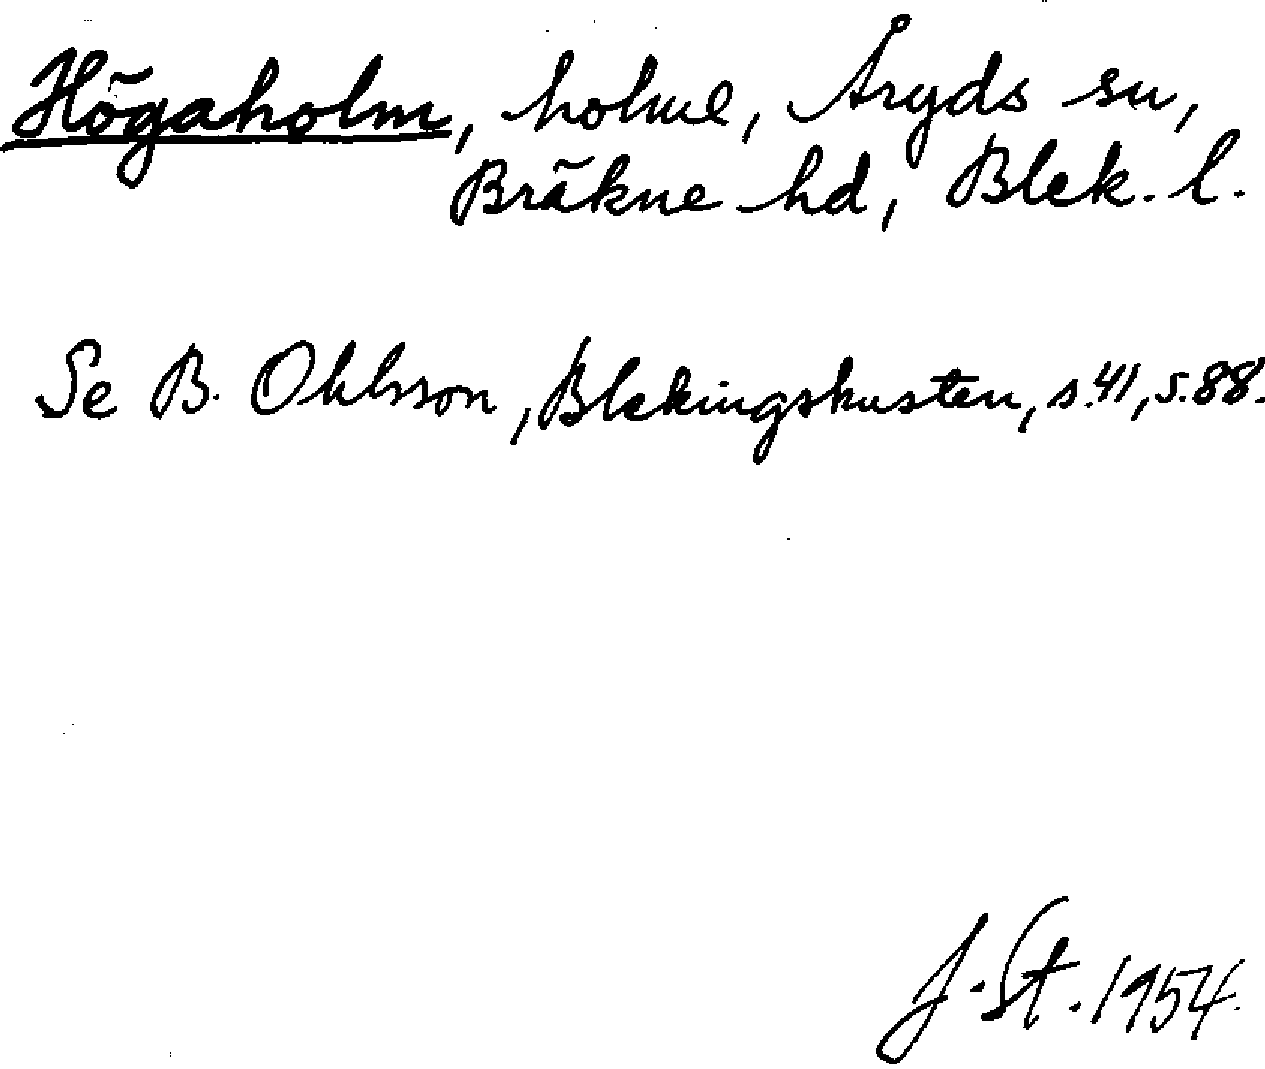 Högaholm, holme, Åryds sn,
Bräkne hd, Blek. l.
Se B. Ohlsson, Blekingskusten, s.41, s.88.
J. St. 1954.